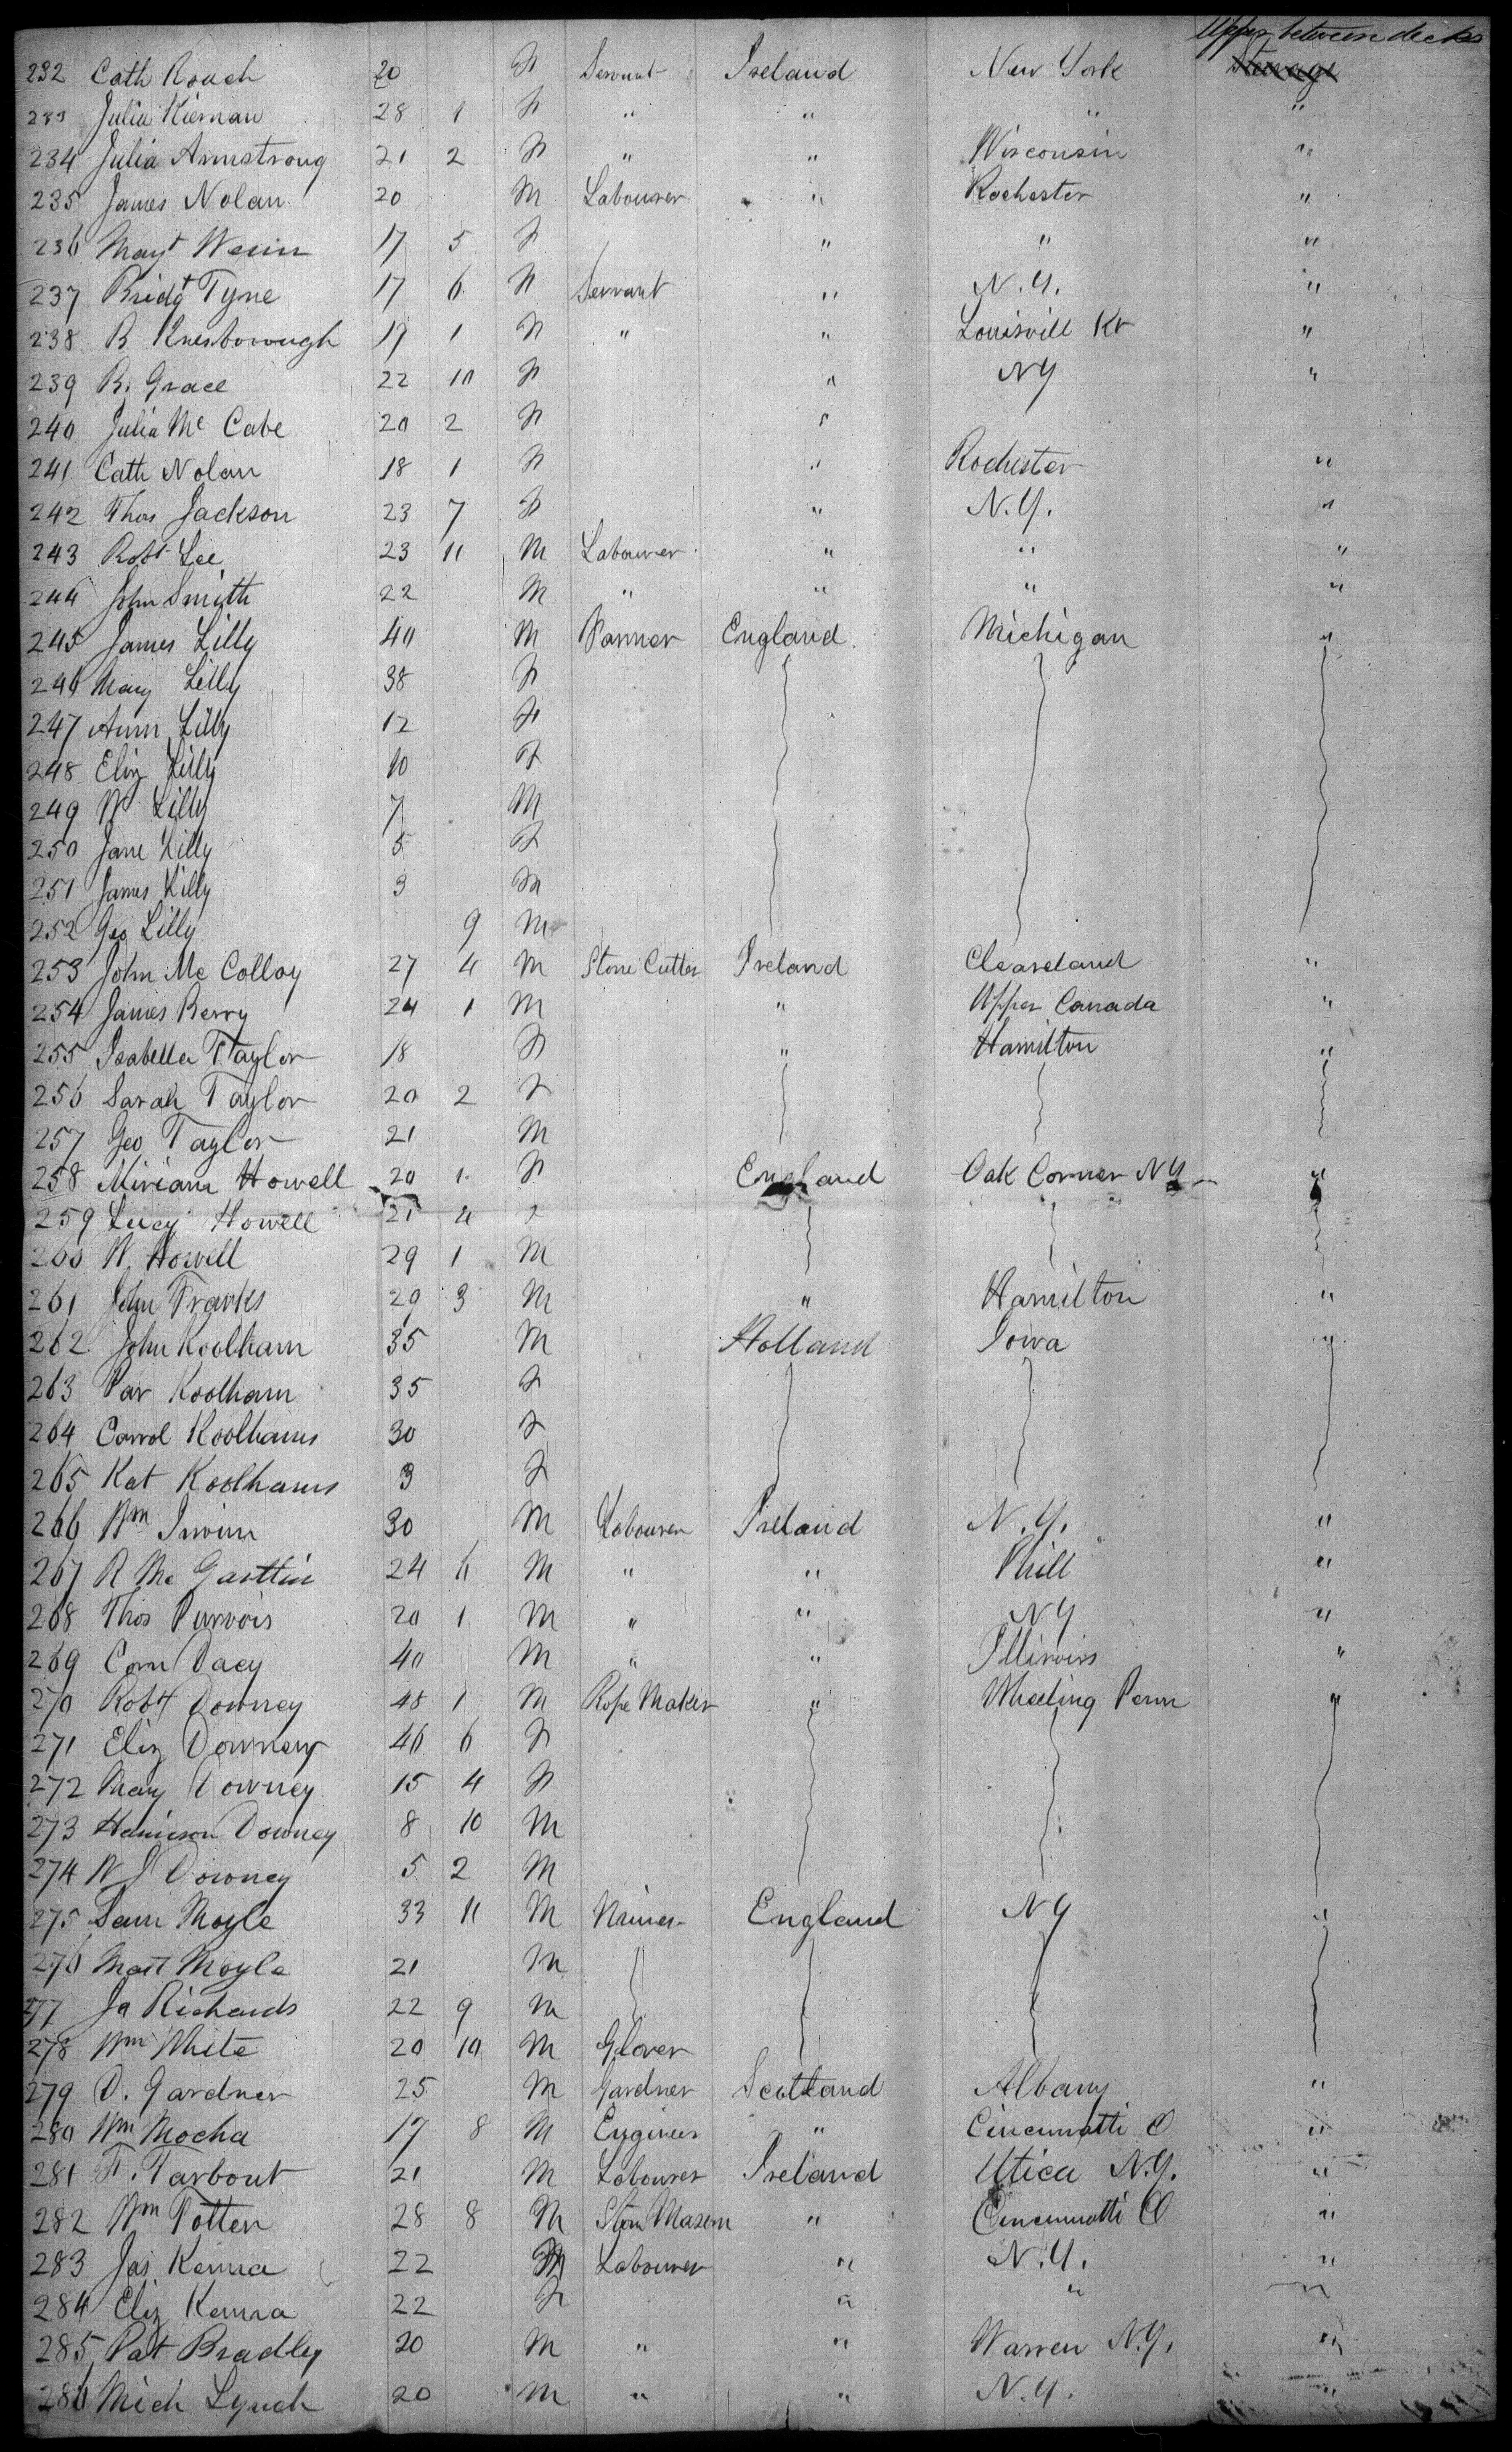 Upper between decks
232 Cath Roach 20 F Servant Ireland New York Steerage
233 Julia Kiernan 28 1 F " " " "
234 Julia Armstrong 21 2 F " " Wisconsin "
235 James Nolan 20 M Labourer " Rochester "
236 Mar<sup>t</sup> 17 5 F " " "
237 Bridgt Tyne 17 6 F Servant " N.Y. "
238 B Knesborough 17 1 F " " Louisvill Kt "
239 B. Grace 22 10 F " NY "
240 Julia Mc Cabe 20 2 F "
241 Cath Nolan 18 1 F " Rochester "
242 Thos Jackson 23 7 F " N.Y. "
243 Robt Lee 23 11 M Labourer " " "
244 John Smith 22 M " " " "
245 James Lilly 40 M Farmer England Michigan "
246 Mary Lilly 38 F
247 Ann Lilly 12 F
248 Eliz Lilly 10 F
249 W Lilly 7 M
250 Jane Lilly 5 F
251 James Lilly 3 M
252 Geo Lilly 9 M
253 John Mc Colloy 27 4 M Stone Cutter Ireland Cleaveland "
254 James Berry 24 1 M " Upper Canada "
255 Isabella Taylor 18 F " Hamilton "
256 Sarah Taylor 20 2 F
257 Geo Taylor 21 M
258 Miriam Howell 20 1 F England Oak Corner NY "
259 Lucy Howell 21 4 F
260 W. Howell 29 1 M
261 John Franks 29 3 M " Hamilton "
262 John Koolham 35 M Holland Iowa "
263 Par Koolham 35 F
264 Carrol Koolhams 30 F
265 Kat Koolhams 3 F
266 Wm Irwin 30 M Labourer Ireland N.Y. "
267 R Mc Garttin 24 6 M " " Phill "
268 Thos Purvois 20 1 M " " NY "
269 Corn Dacy 40 M " " Illinois "
270 Robt Downey 48 1 M Rope Maker " Wheeling Penn "
271 Eliz Downey 46 6 F
272 Mary Downey 15 4 F
273 Downey 8 10 M
274 W J Downey 5 2 M
275 Sam Moyle 33 11 M Miner England NY "
276 Matt Moyle 21 M
277 Ja Richards 22 9 M
278 Wm White 20 10 M Glover
279 D. Gardner 25 M Gardner Scotland Albany "
280 Wm Mocha 17 8 M Engineer " Cincinnatti O "
281 F. Tarbout 21 M Labourer Ireland Utica N.Y. "
282 Wm Totten 28 8 M Ston Mason " Cincinnatti O "
283 Jas Kenna 22 M Labourer " N.Y. "
284 Eliz Kenna 22 F " " "
285 Pat Bradley 20 M " " Warren N.Y. "
286 Mich Lynch 20 M " " N.Y. "